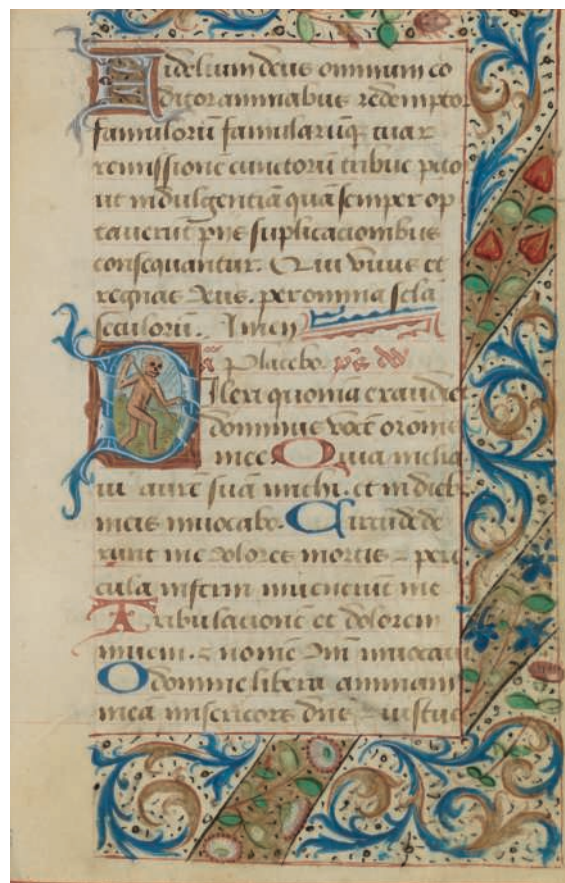 Fidelium deus omnium co
ditor animabus redemptor
famuloru̅ famularu̅q̨ tuar
remissione̅ cunctoru̅ tribue p̅c̅to
ut indulgentia̅ qua̅ semper op
taueru̅t piis suplicacionibus
consequantur. Qui viuis et
regnas Deus. per omnia s̅c̅l̅a
seculoru̅. Amen
a̅n̅ Placebo. p̅s̅ d̅d̅
Dilexi quonia̅ exaudiet
dominus voce̅ or̅onis
mee. Quia inclia
uit aure̅ sua̅ michi. et in dieb
meis inuocabo. Circu̅de̅de
runt me dolores mortis. peri
cula inferni inuenerunt me
Tribulacione̅ et dolorem
inueni. & nome̅ d̅n̅i inuocaui
O domine libera animam
mea̅ misericors d̅n̅s & iustus